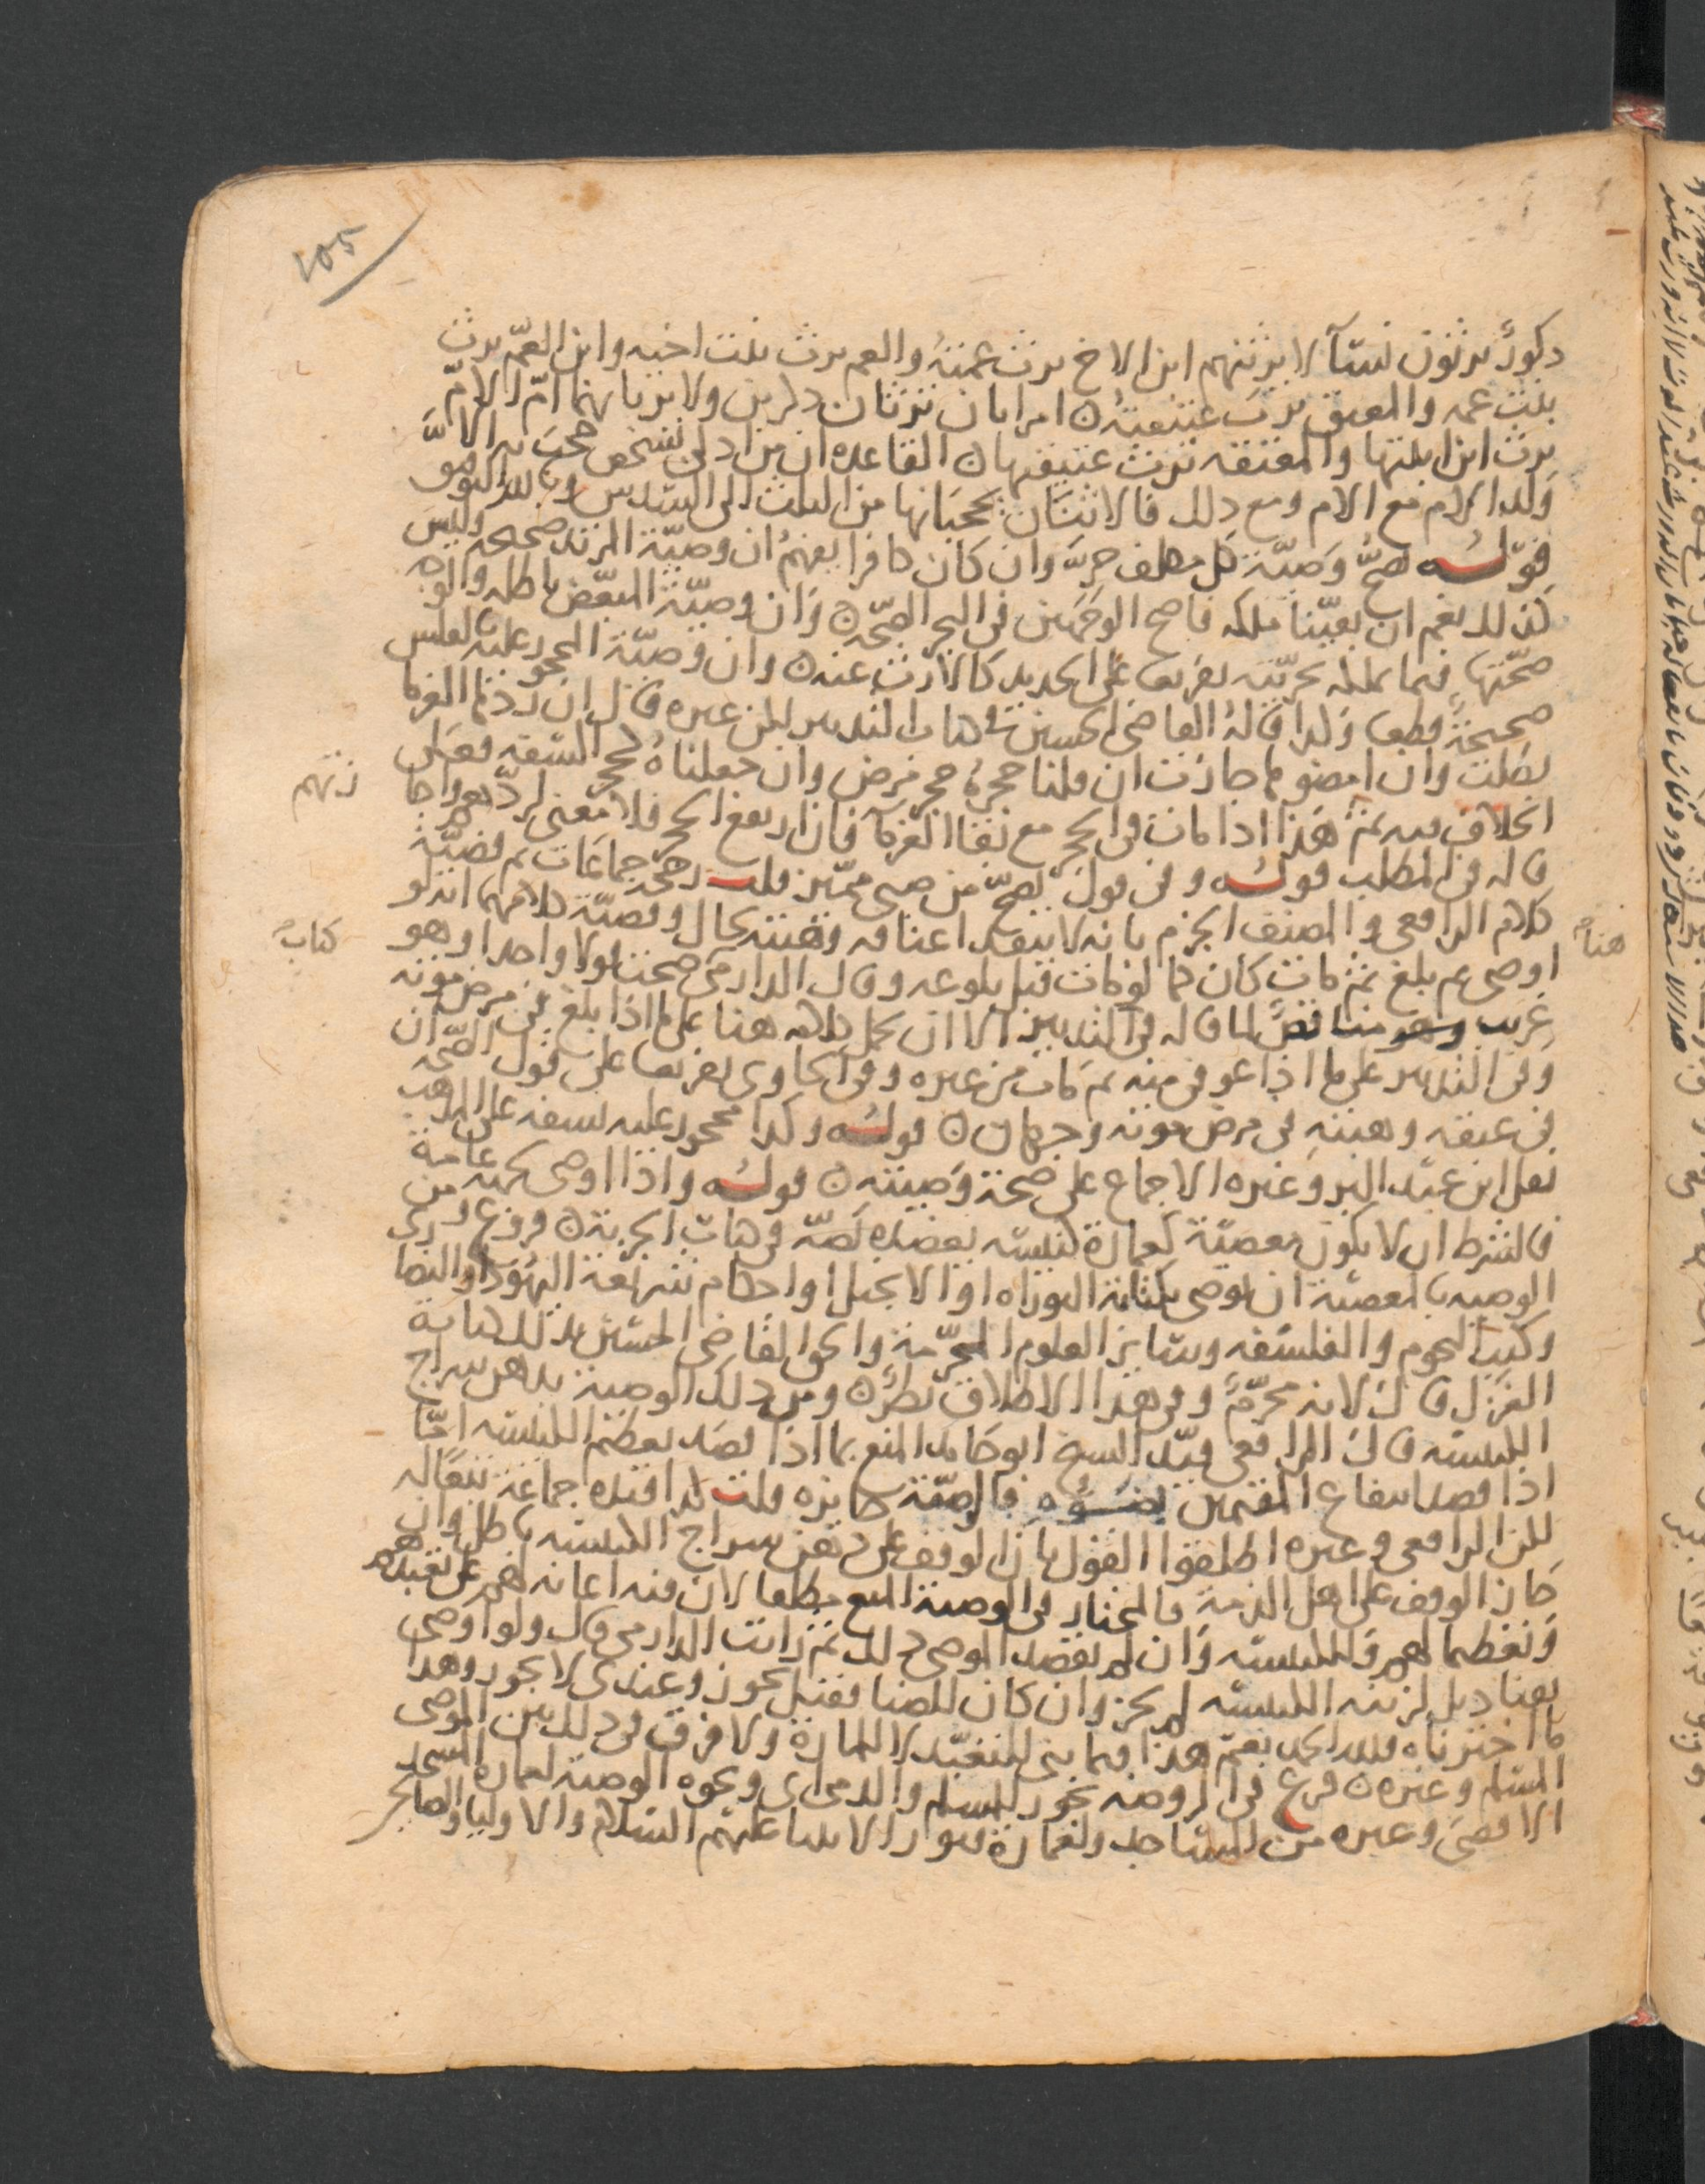 ١٥٥
ذكورٌ يرثون نسآ لا يرثنهم ابن الاخ يرث عمته والعم يرث بنت اخيه وابن العمّ يرث
بنت عمه والمعتق يرث عتيقته ن امراتان ترثان ذكرين ولا يرثانهما امّ الامّ
يرث ابن ابنتها والمعتقه ترث عتيقها ن القاعده ان من ادلى بشخص حجبَ به الا
ولد الام مع الام ومع ذلك فالاثنان يحجبانها من الثلث الى السّدس وبالله التوفيق
قولُــه تصحُّ وَصيّة كل مكلف حرّ وان كان كافرا يفهمُ ان وصيّة المرتد صحيحه وليس
كذلك نعم ان بقيّنا ملكه فاصح الوجهين في البحر الصّحه ن وَان وصيّة المبعّض باطله والوجه
صحّتها فيما يملكه بحريّته تفريعا على الجديد كالارث عنه ن وان وَصيّة المحجور عليه لفلس
صحيحةٌ قطعا وَكذا قالهُ القاضي الحسين في باب التدبير لكن غيره قال ان ردّها الغرما
بطلت وان امضوها جازت ان قلنا حجرُهُ حجر مرض وان جعلناهُ كحجر السّفه فعلى
الخلاف فيه ثمّ هذا اذا مات في الحجر مع بقا الغرمآ فان ارتفع الحجر فلا معنى لردّهم واجازتهم
قاله في المطلب قولُــه وفي قول تصحّ من صبي مميّز قلت رجحه جماعَات ثم قضيّة
كلام الرافعي والمصنف هنا الجزم بانه لا ينفذ اعتاقه وهبته بحال وقضيّة كلامهما انه لو
اوصى ثم بلغ ثمّ مات كان كما لو مات قبل بلوغه وقال الدارمي صحت قولا واحدا وهو
غريب وهو مناقضٌ لما قاله في كتاب التدبير الا ان يحمل كلامه هنا على ما اذا بلغ في مرض موته
وفي التدبير على ما اذا عوفي منه ثم مات من غيره وفي الحاوي تفريعا على قول الصّحه ان
في عتقه وهبتهِ في مرض موته وجهان ن قولُــه وكذا محجور عليه بسفه على المذهب
نقل ابن عبد البر وغيره الاجماع على صحة وَصيته ن قولُــه واذا اوصى لجهة عامة
فالشرط ان لا يكون معصيّة كعمارة كنيسه يعضده نصّه في باب الجزية ن فروع ومن
الوصيه بالمعصيّة ان يوصي بكتابة التوراه او الانجيل او احكام شريعة اليهُود والنصارى
وكتب النجوم والفلسفه وسَائر العلوم المحرّمة والحق القاضي الحسَين بذلك كتابة
الغزل قال لانه محرّمٌ وفي هذا الاطلاق نظرٌ ن ومن ذلك الوصية بدهن سراج
الكنيسه قال الرافعي قيّد الشيخ ابو حامد المنع بما اذا قصَد تعظيم الكنيسه امّا
اذا قصد انتفاع المقيمين بضوئه فالوصيّة جايزه قلت كذا قيده جماعة تبعا له
لكن الرافعي وغيره اطلقوا القول بان الوقف على دهن سراج الكنيسه باطل وان
جَاز الوقف على اهل الذمة فالمختار في الوصية المنع مطلقا لان فيه اعانه لهم على تعبّدهم
وتعظيما لهم وَللكنيسه وَان لم يقصد الموصي ذلك ثم رايت الدارمي قال ولو اوصى
بقناديل لزينة الكنيسه لم يجز وان كان للضيا فقيل يجوز وعندي لا يجوز وهذا
ما اخترناه فلله الحمد نعمّ هذا فيما بني للتعبّد لا للمارة ولا فرق في ذلك بين الموصي
المسلم وغيره ن فرع في الروضه يجوز للمسلم والذمي الوصية لعمارة المسجد
الاقصَى وغيره من المسَاجد ولعمارة قبور الانبيا عليهم السّلام والاوليا والصَالحين